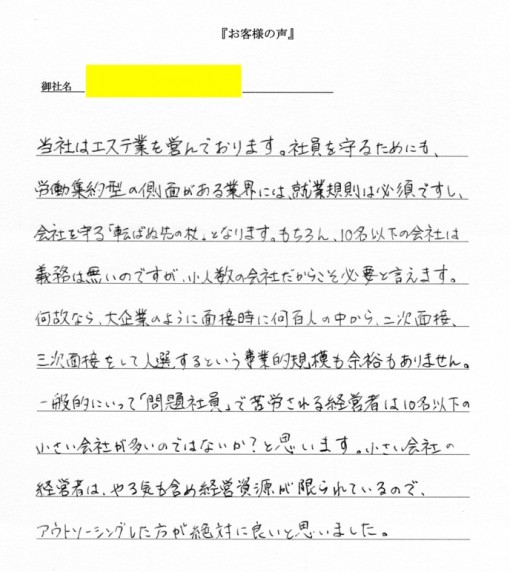 『お客様の声』
御社名
当社はエステ業を営んでおります。社員を守るためにも、
労働集約型の側面がある業界には、就業規則は必須ですし、
会社を守る「転ばぬ先の杖」となります。もちろん、10名以下の会社は
義務は無いのですが、小人数の会社だからこそ必要と言えます。
何故なら、大企業のように面接時に何百人の中から、二次面接、
三次面接をして人選するという事業的規模も余裕もありません。
一般的にいって「問題社員」で苦労される経営者は10名以下の
小さい会社が多いのではないか？と思います。小さい会社の
経営者は、やる気も含め経営資源が限られているので、
アウトソーシングした方が絶対に良いと思いました。